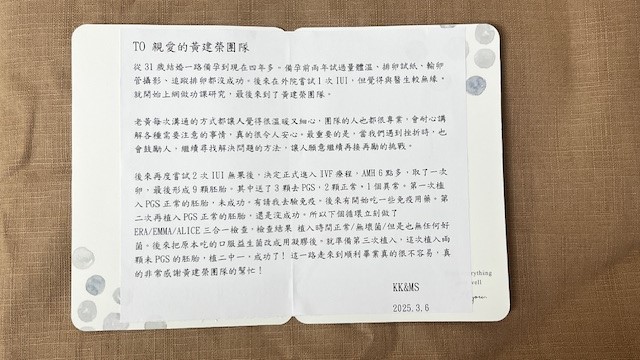 TO 親愛的黃建榮團隊
從 31 歲結婚一路備孕到現在四年多。備孕前兩年試過量體溫、排卵試紙、輸卵
管攝影、追蹤排卵都沒成功。後來在外院嘗試 1 次 IUI，但覺得與醫生較無緣，
就開始上網做功課研究，最後來到了黃建榮團隊。
老黃每次溝通的方式都讓人覺得很溫暖又細心，團隊的人也都很專業，會耐心講
解各種需要注意的事情，真的很令人安心。最重要的是，當我們遇到挫折時，也
會鼓勵人，繼續尋找解決問題的方法，讓人願意繼續再接再勵的挑戰。
後來再度嘗試 2 次 IUI 無果後，決定正式進入 IVF 療程，AMH 6 點多，取了一次
卵，最後形成 9 顆胚胎。其中送了 3 顆去 PGS，2 顆正常，1 個異常。第一次植
入 PGS 正常的胚胎，未成功。有請我去驗免疫，後來有開始吃一些免疫用藥。第
二次再植入 PGS 正常的胚胎，還是沒成功。所以下個循環立刻做了
ERA/EMMA/ALICE 三合一檢查，檢查結果 植入時間正常/無壞菌/但是也無任何好
菌。後來把原本吃的口服益生菌改成用凝膠後，就準備第三次植入，這次植入兩
顆未 PGS 的胚胎，植二中一，成功了! 這一路走來到順利畢業真的很不容易，真
的非常感謝黃建榮團隊的幫忙!
KK&MS
2025.3.6